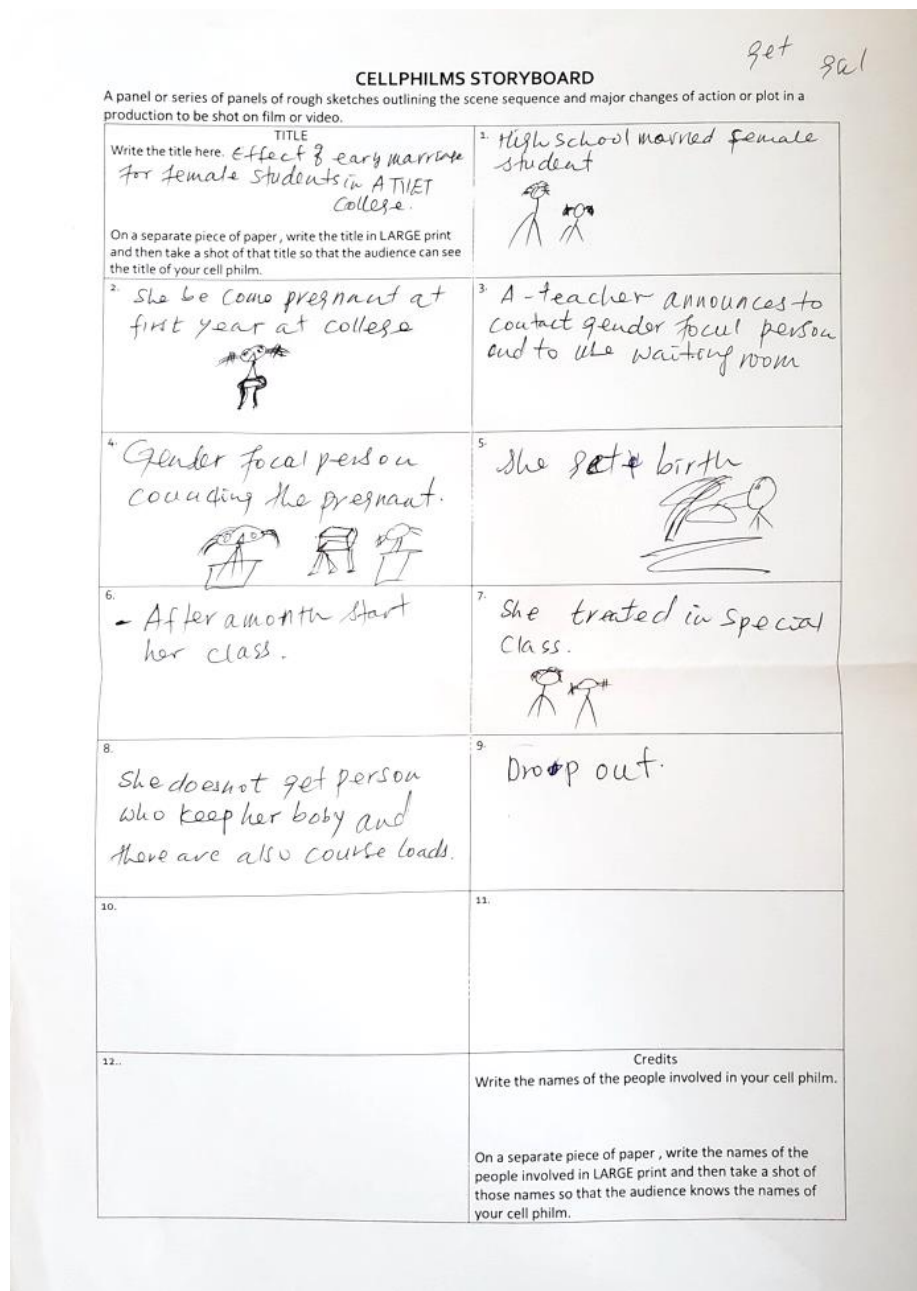 get gal
CELLPHILMS STORYBOARD
A panel or series of panels of rough sketches outlining the scene sequence and major changes of action or plot in a
production to be shot on film or video.
TITLE
Write the title here. Effect of eary marriage
for female students in ATVET
College.
On a separate piece of paper , write the title in LARGE print
and then take a shot of that title so that the audience can see
the title of your cell philm.
1. High School married female
student
2. She be come pregnant at
first year at college
3. A-teacher announces to
contact gender focul person
and to use waiting room
4. Gender focal person
the pregnant.
5. She birth
6.
- After a month start
her class.
7. She treated in special
class.
8.
She doesnot get person
who keep her boby and
there are also course loads.
9. Droop out.
10.
11.
12..
Credits
Write the names of the people involved in your cell philm.
On a separate piece of paper , write the names of the
people involved in LARGE print and then take a shot of
those names so that the audience knows the names of
your cell philm.